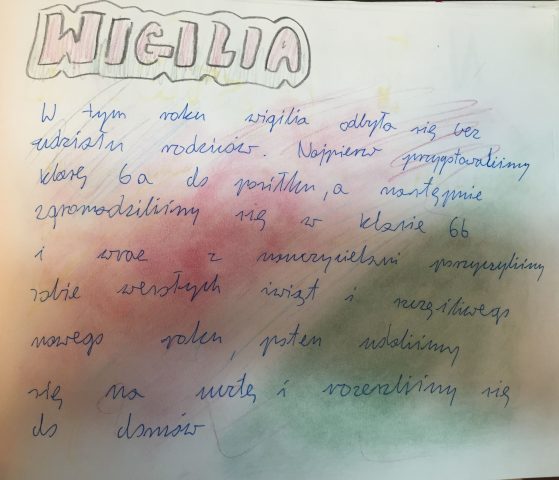 WIGILIA
W tym roku wigilia odbyła się bez
udziału rodziców. Najpierw przygotowaliśmy
klasę 6a do posiłku, a następnie
zgromadziliśmy się w klasie 6b
i wraz z nauczycielami życzyliśmy
sobie wesołych świąt i szczęśliwego
nowego roku, potem udaliśmy
się na ucztę i rozeszliśmy się
do domów